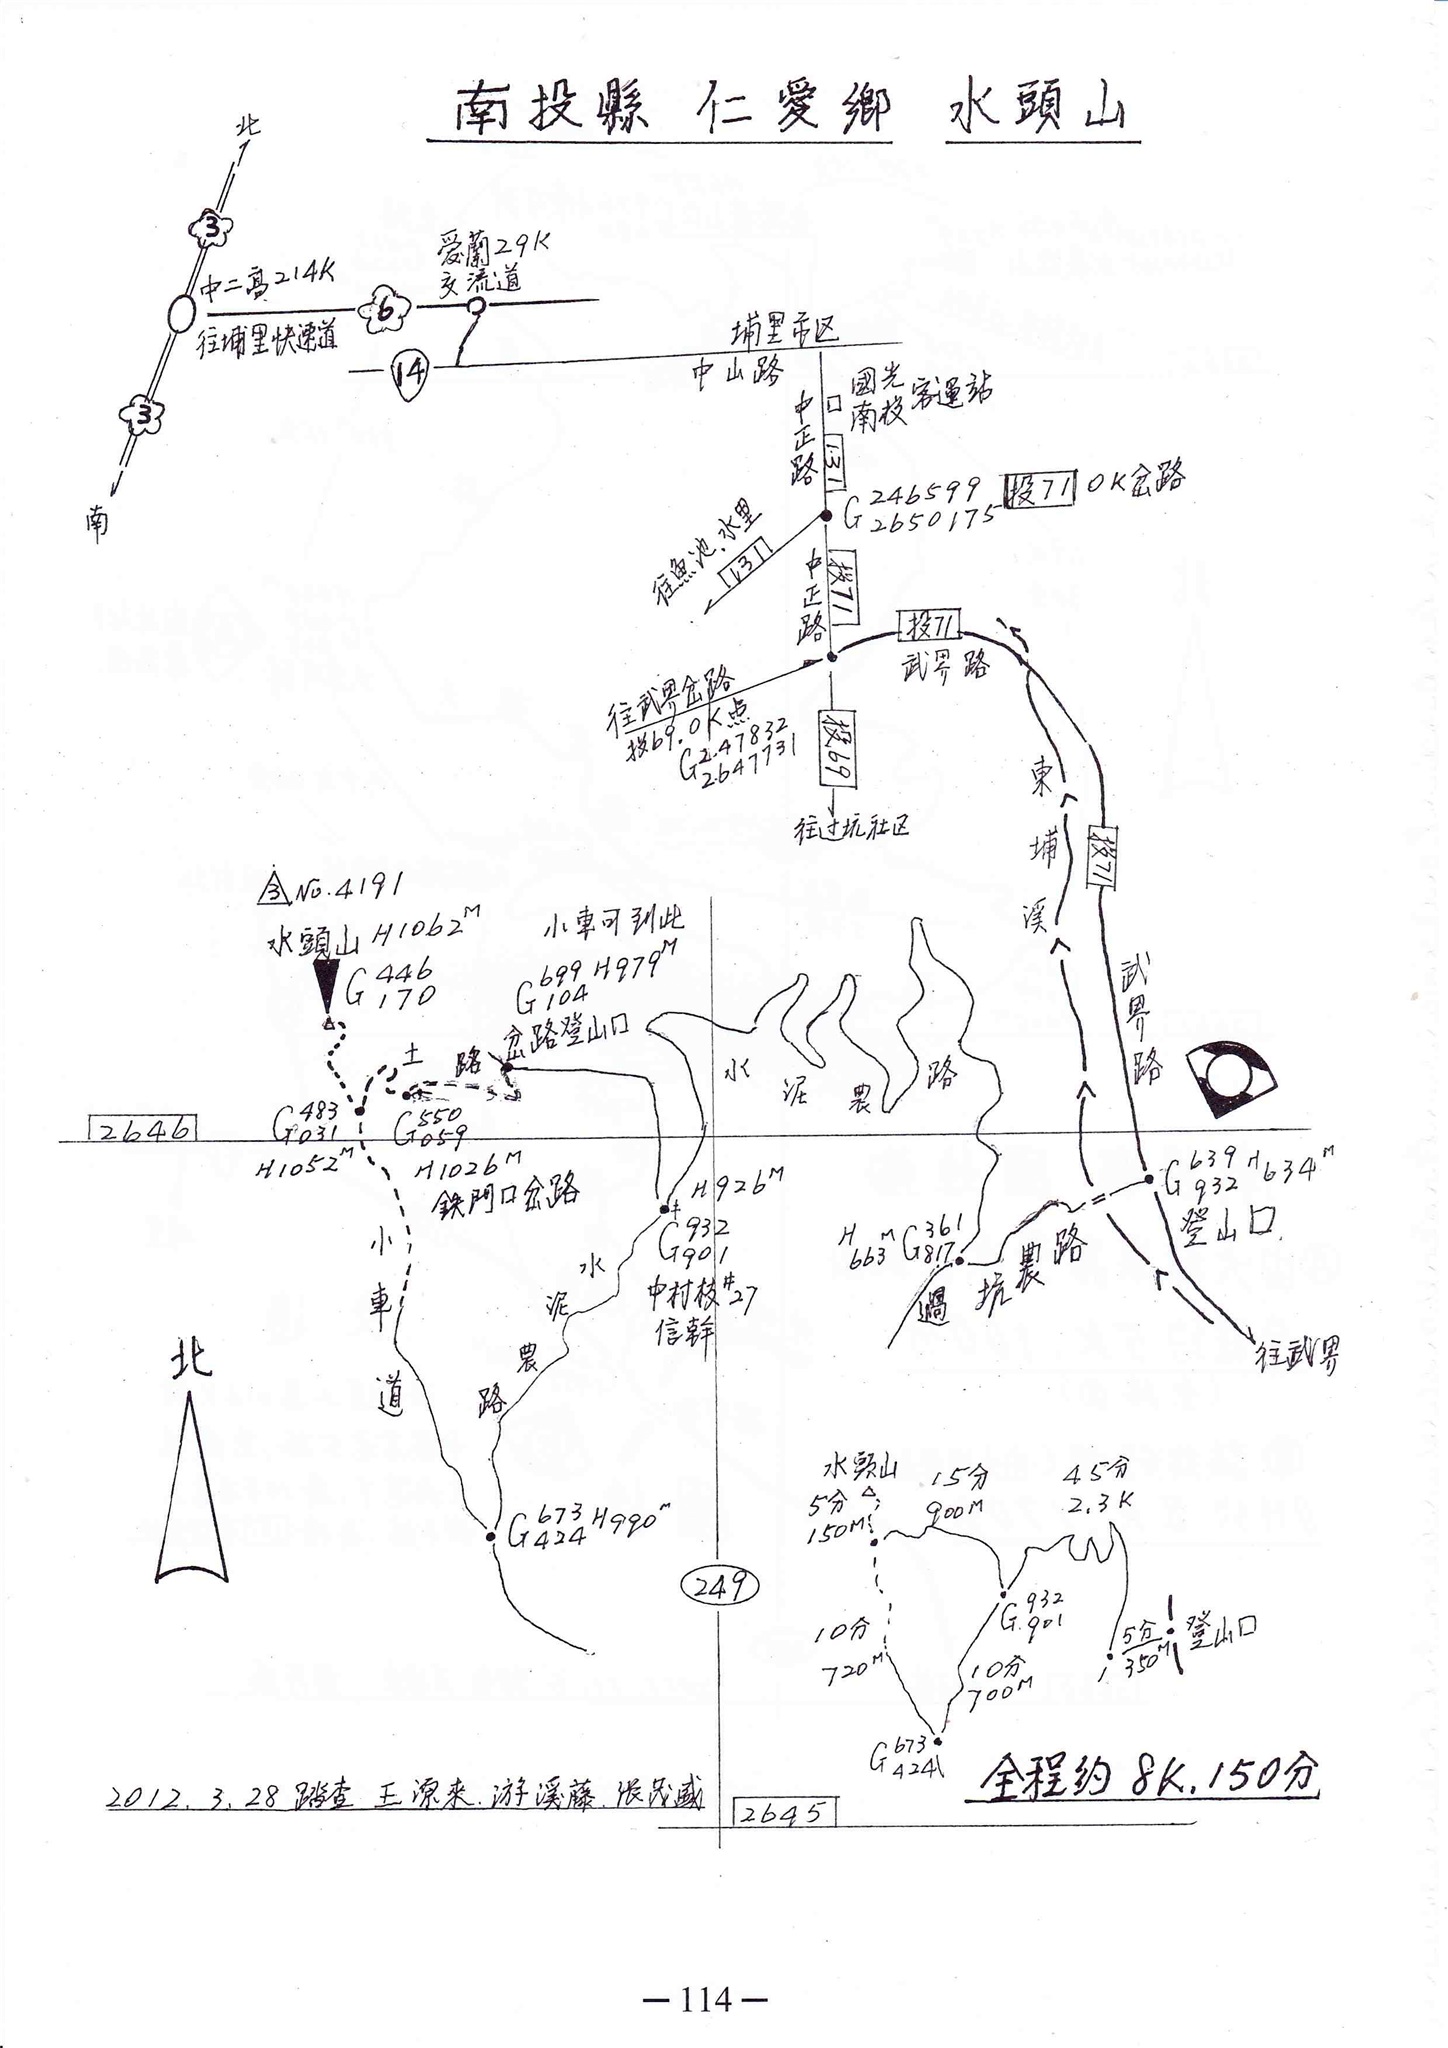 南投縣 仁愛鄉 水頭山
北
3
中二高214K
往埔里快速道
6
愛蘭29K
交流道
3
南
14
埔里市区
中山路
國光
南投客運站
中正路
131
G 246599
2650175
投71 0K岔路
往魚池.水里
131
中正路
投71
投71
武界路
往武界岔路
投69.0K点
G 247832
2647731
投69
往过坑社区
東埔溪
投71
武界路
3 No.4191
水頭山 H1062M
G 446
170
小車可到此
G 699 H979M
104
岔路登山口
土路
水泥農路
2646
G 483
031
H1052M
G 550
059
H1026M
鉄門口岔路
H926M
G 932
901
中村枝#27
信幹
G 639 H634M
932
登山口
H663M G 361
817
過坑農路
往武界
小車道
水泥農路
北
G 673 H990M
424
249
水頭山
5分
150M
15分
900M
45分
2.3K
G 932
901
5分
350M
登山口
10分
720M
10分
700M
G 673
424
全程約 8K.150分
2012.3.28踏查 王源来.游溪藤.張茂盛
2645
— 114 —